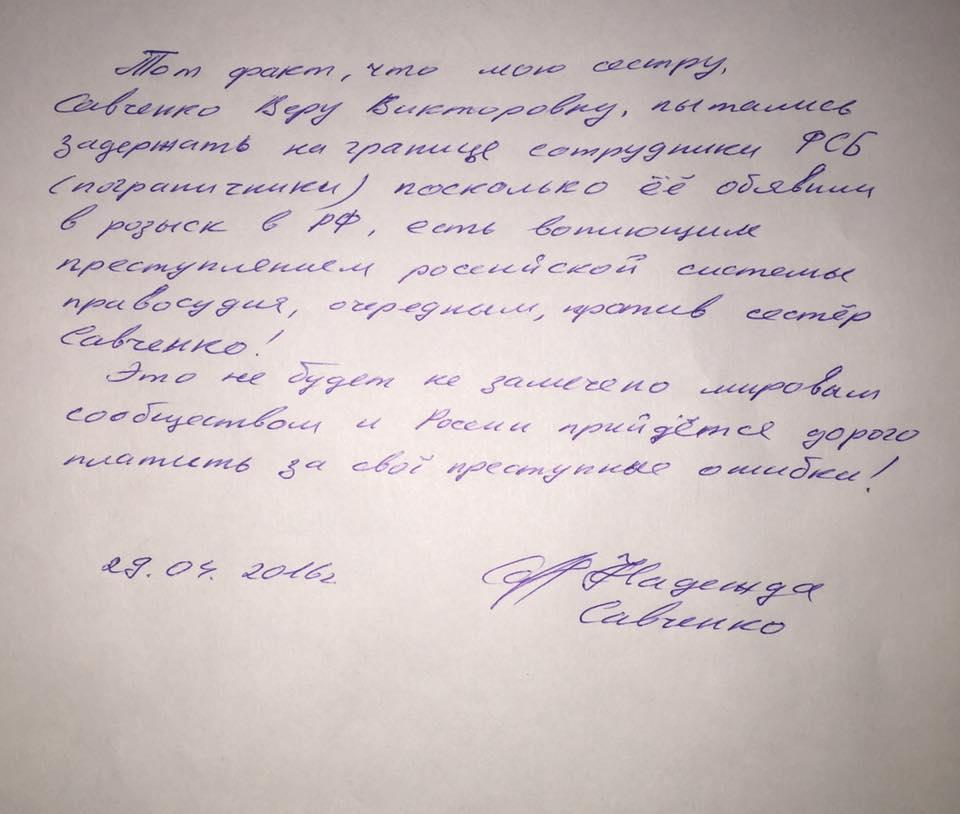 Тот факт, что мою сестру,
Савченко Веру Викторовну, пытались
задержать на границе сотрудники ФСБ
(пограничники) поскольку её обявили
в розыск в РФ, есть вопиющим
преступлением российской системы
правосудия, очередным, против сестёр
Савченко!
Это не будет не замечено мировым
сообществом и России прийдётся дорого
платить за свої преступные ошибки!
29.04.2016г.
Надежда
Савченко